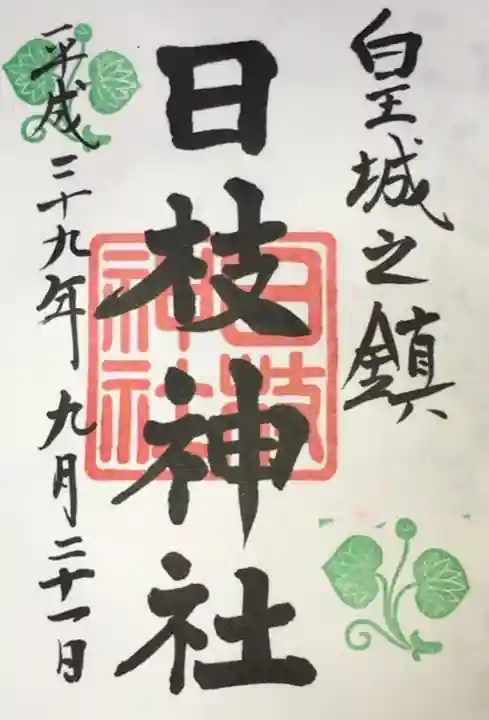 皇城之鎮
日枝神社
日枝神社
平成二十九年九月二十一日